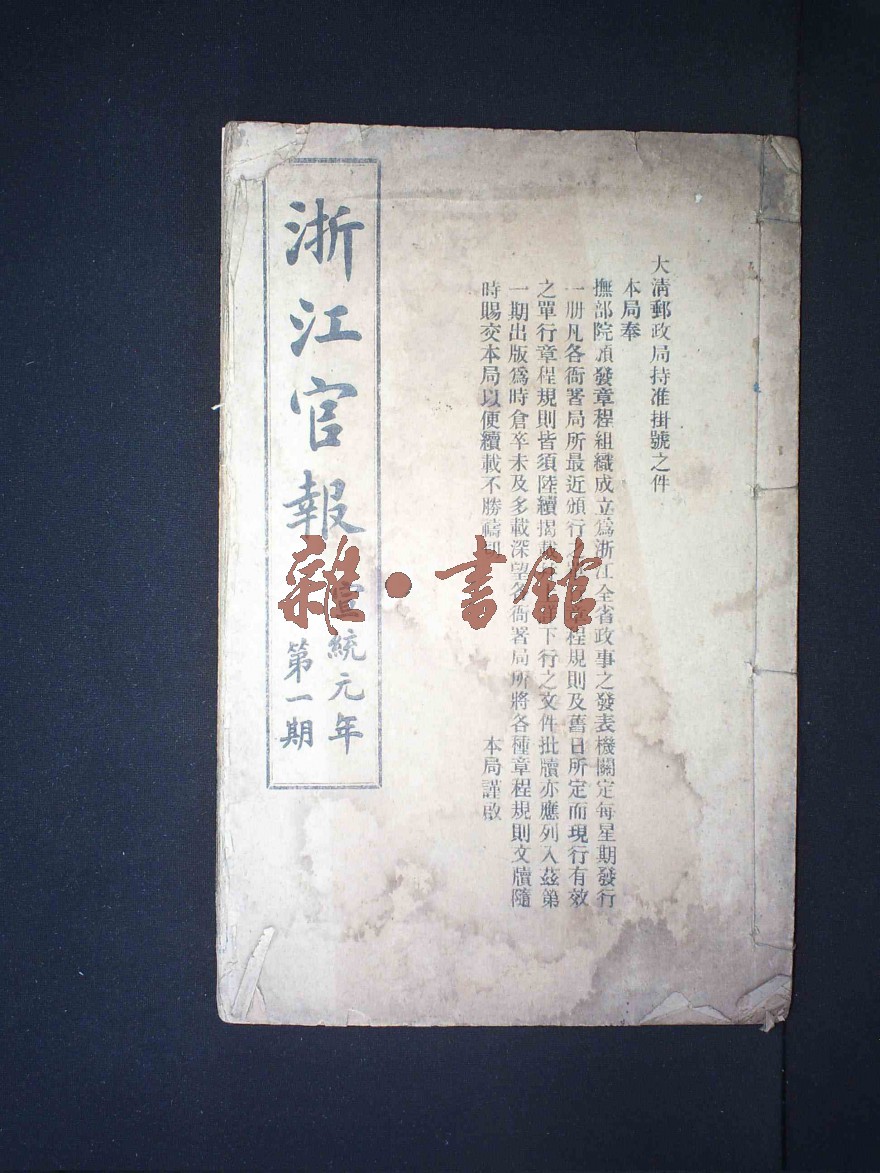 大清郵政局持准掛號之件
本局奉
撫部院頒發章程組織成立爲浙江全省政事之發表機關定每星期發行
一册凡各衙署局所最近頒行 章程規則及舊日所定而現行有效
之單行章程規則皆須陸續揭 下行之文件批牘亦應列入茲第
一期出版爲時倉卒未及多載深望各衙署局所將各種章程規則文牘隨
時賜交本局以便續載不勝禱 本局謹啟
浙江官報
宣統元年
第一期
雜·書館